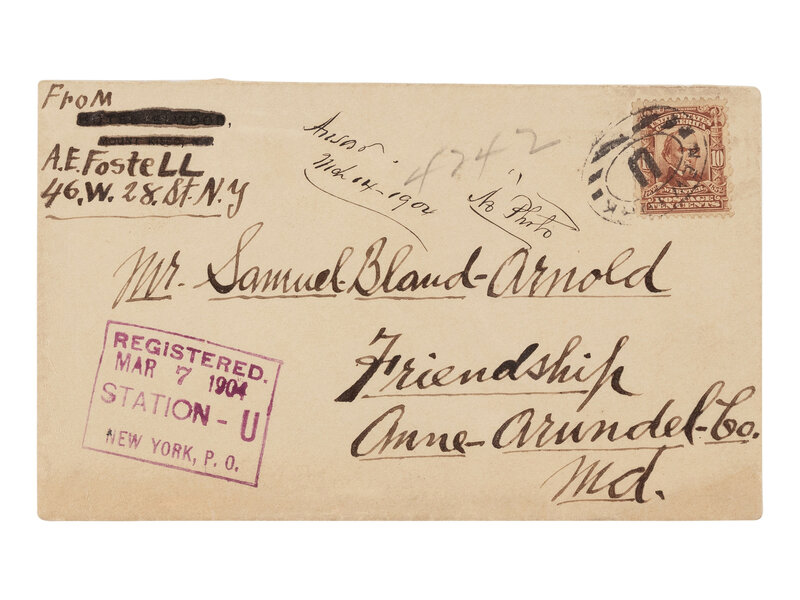 From
A.E. Fostell
46, W. 28. St. N.Y
Answd
Mch 14 - 1904
4242
No Photo
UNITED STATES
AMERICA
10
POSTAGE
TEN CENTS
U
Mr. Samuel-Bland-Arnold
Friendship
Anne-Arundel-Co.
Md.
REGISTERED.
MAR 7 1904
STATION - U
NEW YORK, P. O.